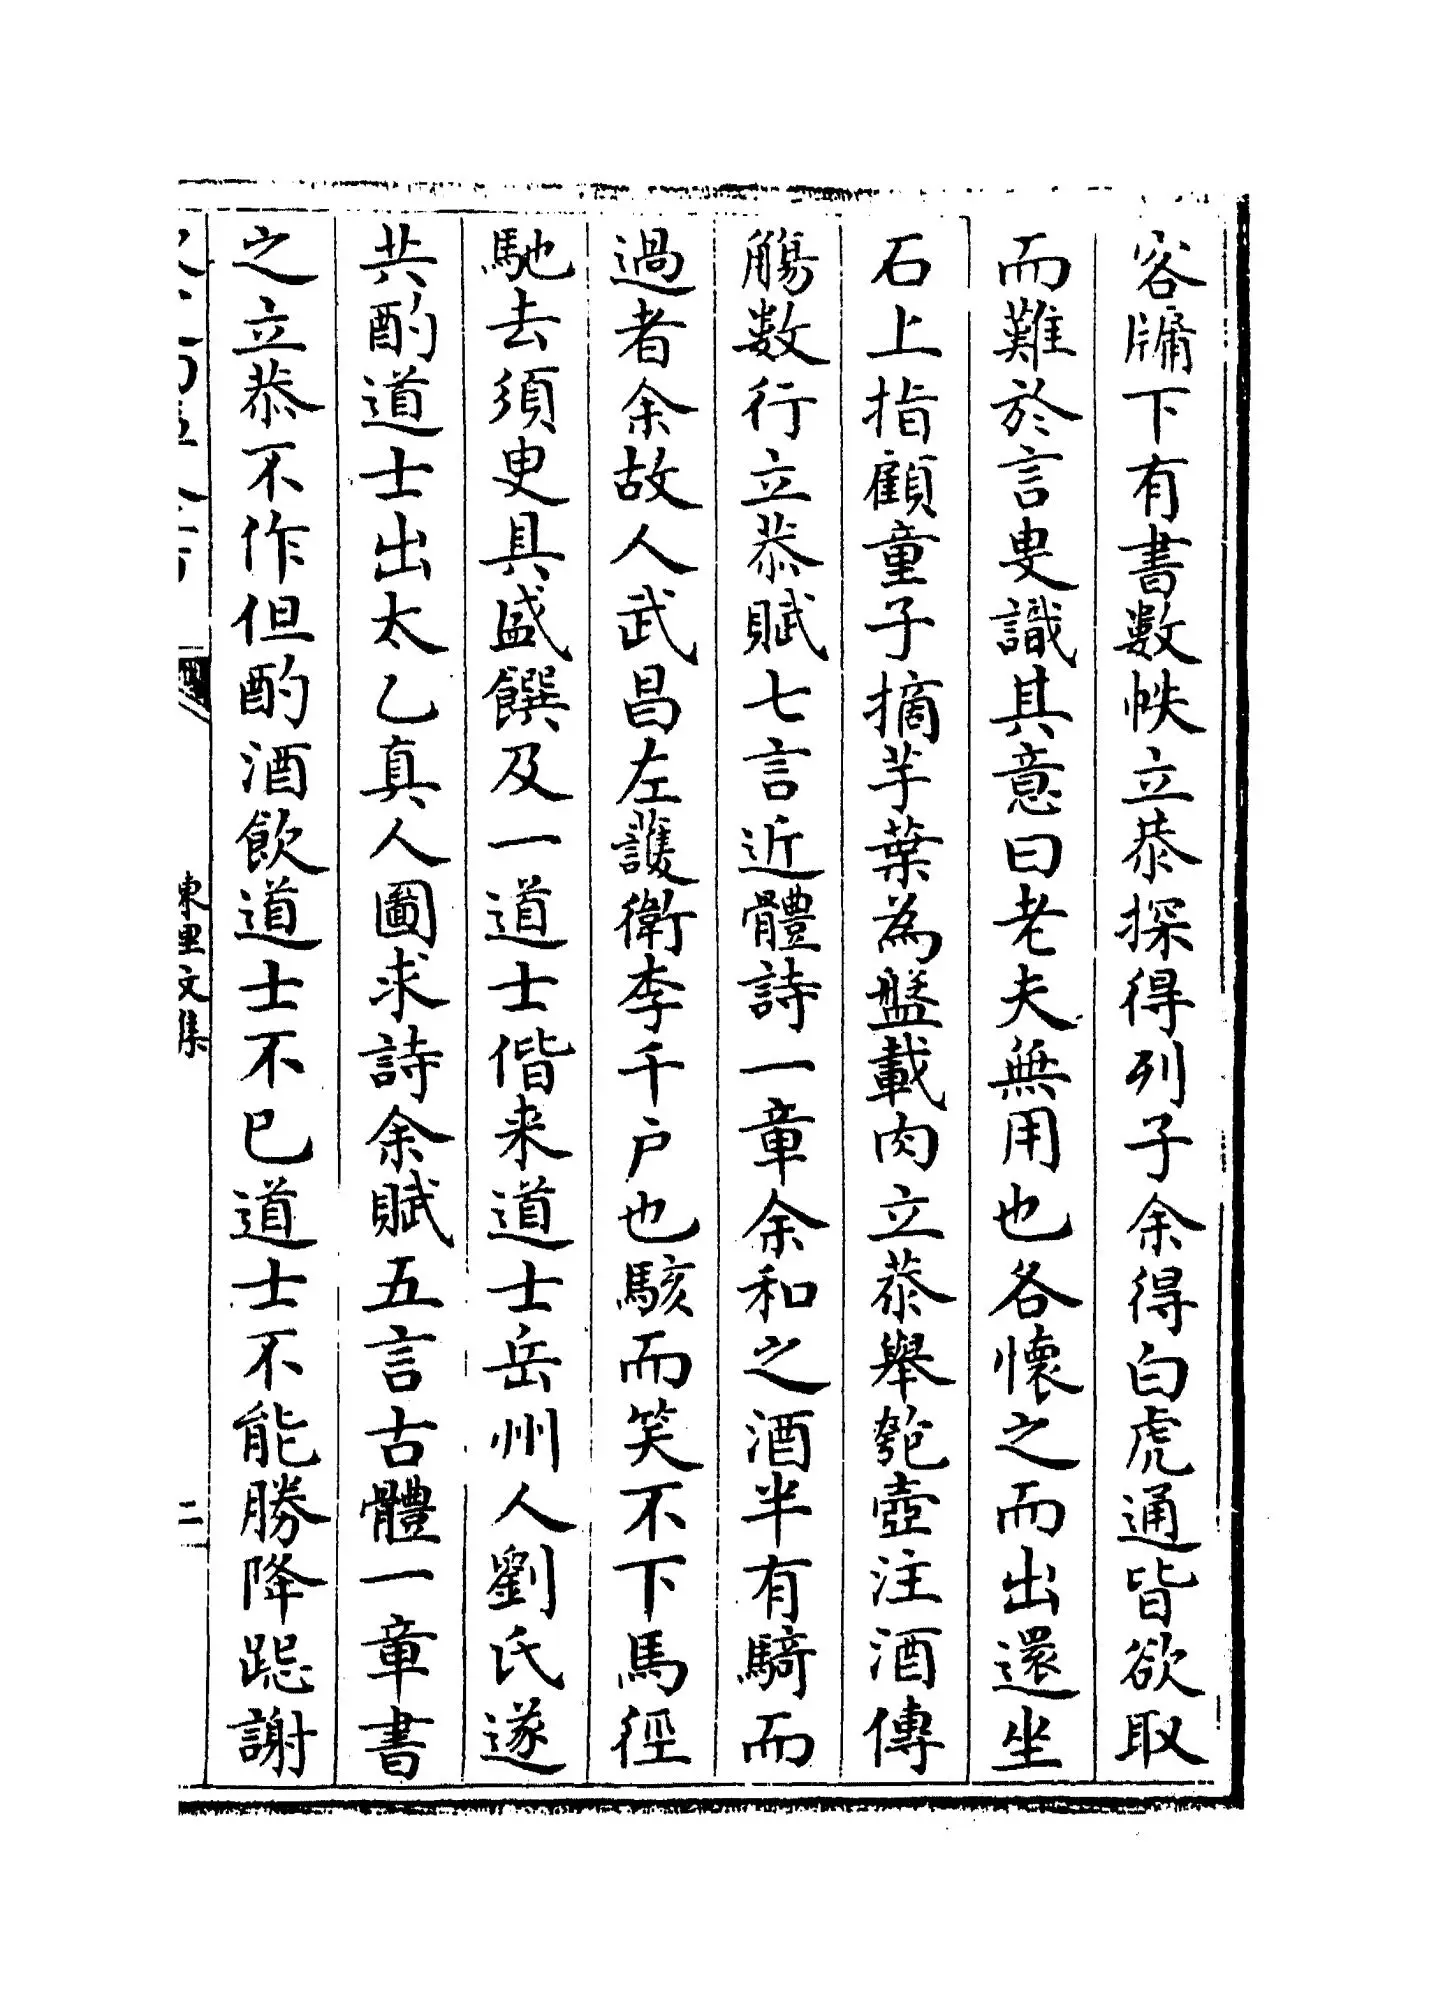 容牖下有書數帙立恭探得列子余得白虎通皆欲取
而難於言叟識其意曰老夫無用也各懷之而出還坐
石上指顧童子摘芋葉為盤載肉立恭舉匏壺注酒傳
觴数行立恭賦七言近體詩一章余和之酒半有騎而
過者余故人武昌左護衛李千户也駭而笑不下馬徑
馳去須臾具盛饌及一道士偕来道士岳州人劉氏遂
共酌道士出太乙真人圖求詩余賦五言古體一章書
之立恭不作但酌酒飲道士不已道士不能勝降跽謝
東里文集
二